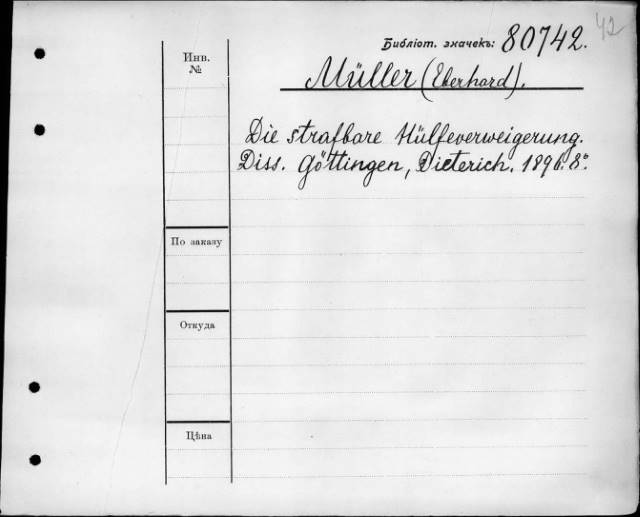 42
Библіот. значекъ: 80742.
Инв. №
Müller (Eberhard).
Die strafbare Hülfeverweigerung.
Diss. Göttingen, Dieterich. 1896. 8°.
По заказу
Откуда
Цѣна